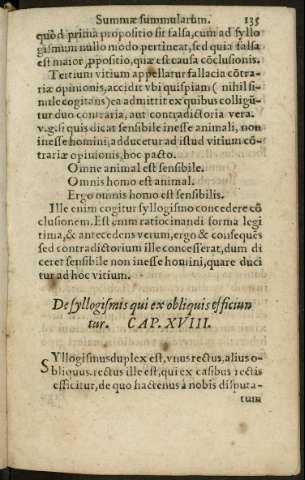 Summæ summularum. 135
quòd prima propositio sit falsa, cum ad syllo
gismum nullo modo pertineat, sed quia falsa
est maior, ꝓpositio, quæ est causa cōclusionis.
Tertium vitium appellatur fallacia cōtra-
riæ opinionis, accidit vbi quispiam ( nihil si-
mile cogitans ) ea admittit ex quibus colligū-
tur duo contraria, aut contradictoria vera.
v.g. si quis dicat sensibile inesse animali, non
inesse homini, adducetur ad istud vitium cō-
trariæ opinionis, hoc pacto.
Omne animal est sensibile.
Omnis homo est animal.
Ergo omnis homo est sensibilis.
Ille enim cogitur syllogismo concedere cō
clusionem. Est enim ratiocinandi forma legi
tima, & antecedens verum, ergo & consequēs
sed contradictorium ille concesserat, dum di
ceret sensibile non inesse homini, quare duci
tur ad hoc vitium.
De syllogismis qui ex obliquis efficiun
tur. CAP. XVIII.
SYllogismus duplex est, vnus rectus, alius o-
bliquus. rectus ille est, qui ex casibus rectis
efficitur, de quo hactenus à nobis disputa-
tum